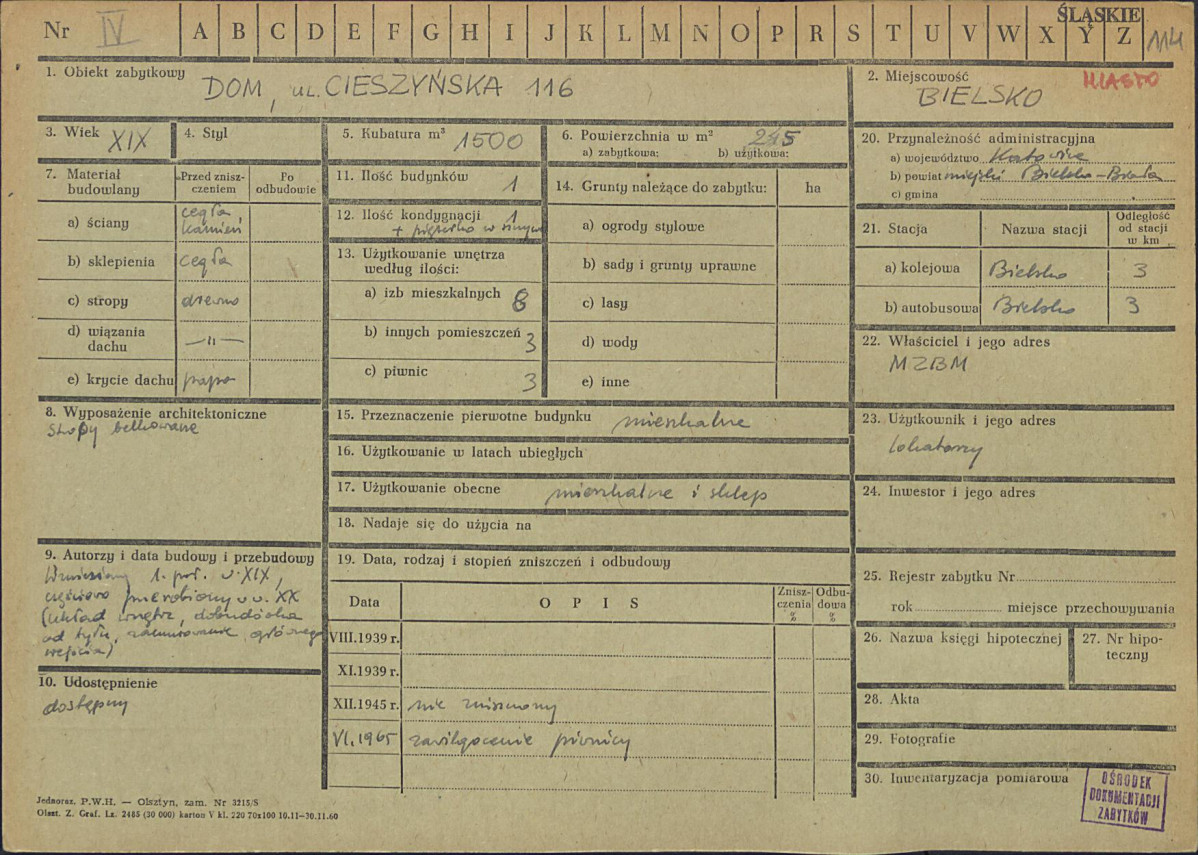 Nr IV A B C D E F G H I J K L M N O P R S T U V W X Y Z
ŚLĄSKIE
114
1. Obiekt zabytkowy
DOM, UL. CIESZYŃSKA 116
2. Miejscowość
MIASTO
BIELSKO
3. Wiek XIX
4. Styl
5. Kubatura m³ 1500
6. Powierzchnia w m² 245
a) zabytkowa: b) użytkowa:
7. Materiał budowlany
Przed zniszczeniem
Po odbudowie
a) ściany cegła, kamień
b) sklepienia cegła
c) stropy drewno
d) wiązania dachu —"—
e) krycie dachu papa
8. Wyposażenie architektoniczne
stropy belkowane
9. Autorzy i data budowy i przebudowy
Wzniesiony 1. poł. w. XIX,
częściowo przerobiony w w. XX
(układ wnętrz, dobudówka
od tyłu, zamurowanie głównego
wejścia)
10. Udostępnienie
dostępny
11. Ilość budynków 1
12. Ilość kondygnacji 1
+ piętro w
13. Użytkowanie wnętrza
według ilości:
a) izb mieszkalnych 8
b) innych pomieszczeń 3
c) piwnic 3
14. Grunty należące do zabytku: ha
a) ogrody stylowe
b) sady i grunty uprawne
c) lasy
d) wody
e) inne
15. Przeznaczenie pierwotne budynku mieszkalne
16. Użytkowanie w latach ubiegłych
17. Użytkowanie obecne mieszkalne i sklep
18. Nadaje się do użycia na
19. Data, rodzaj i stopień zniszczeń i odbudowy
Data O P I S Zniszczenia % Odbudowa %
VIII.1939 r.
XI.1939 r.
XII.1945 r. nie zniszczony
VI.1965 zawilgocenie piwnicy
20. Przynależność administracyjna
a) województwo Katowice
b) powiat miejski Bielsko-Biała
c) gmina
21. Stacja Nazwa stacji Odległość od stacji w km
a) kolejowa Bielsko 3
b) autobusowa Bielsko 3
22. Właściciel i jego adres
MZBM
23. Użytkownik i jego adres
lokatorzy
24. Inwestor i jego adres
25. Rejestr zabytku Nr
rok miejsce przechowywania
26. Nazwa księgi hipotecznej
27. Nr hipoteczny
28. Akta
29. Fotografie
30. Inwentaryzacja pomiarowa
OŚRODEK
DOKUMENTACJI
ZABYTKÓW
Jednoraz. P.W.H. — Olsztyn, zam. Nr 3215/S
Olszt. Z. Graf. Lz. 2485 (30 000) karton V kl. 220 70x100 10.11—30.11.60